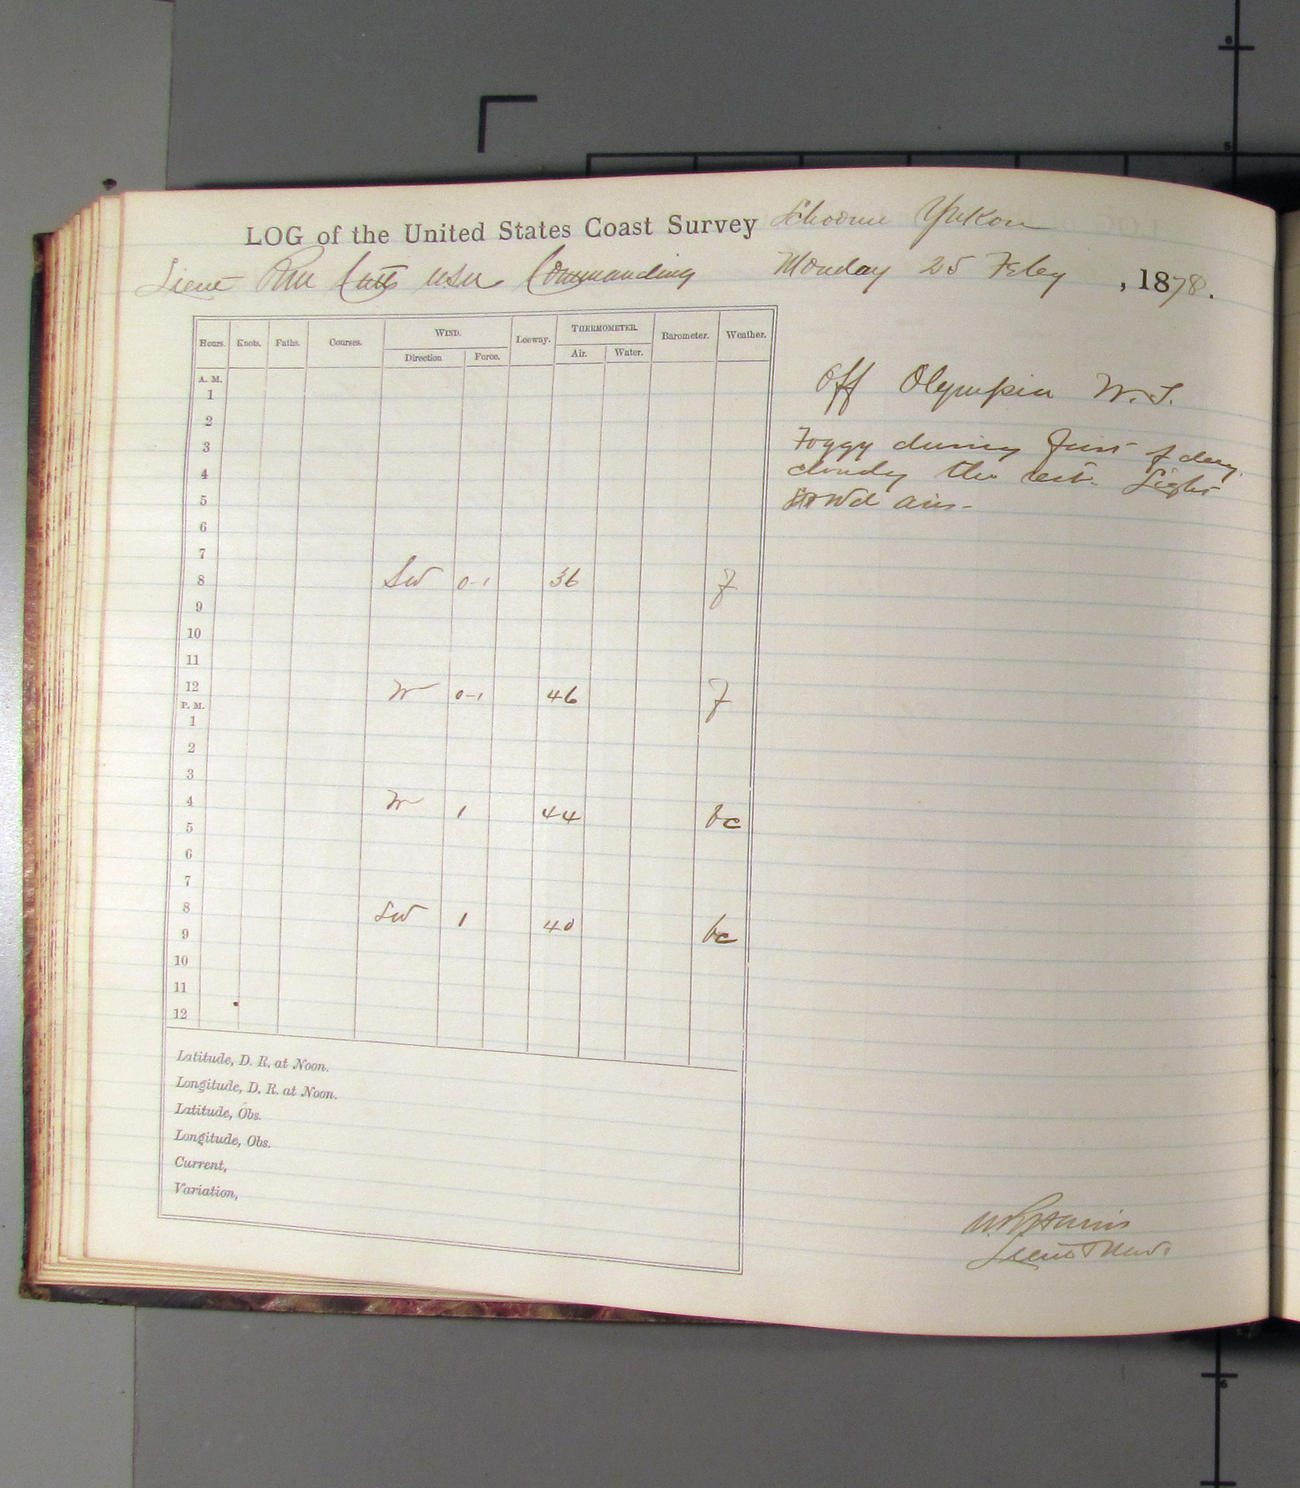 LOG of the United States Coast Survey Schooner Yukon
Lieut Cutts USN Commanding Monday 25 Feby, 1878.
Hours. Knots. Faths. Courses. WIND. Leeway. THERMOMETER. Barometer. Weather.
Direction Force. Air. Water.
A. M.
1
2
3
4
5
6
7
8 SW 0-1 36 f
9
10
11
12 W 0-1 46 f
P. M.
1
2
3
4 W 1 44 bc
5
6
7
8 SW 1 40 bc
9
10
11
12
Latitude, D. R. at Noon.
Longitude, D. R. at Noon.
Latitude, Obs.
Longitude, Obs.
Current,
Variation,
Off Olympia W.T.
Foggy during first of day.
cloudy the rest. Light
Wd airs-
Lieut
5
6
6